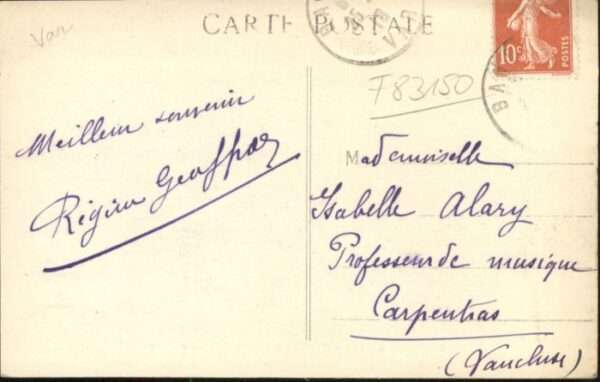 Var
CARTE POSTALE
10c
POSTES
VAR
F83150
Meilleur souvenir
Régina Geoffroy
Mademoiselle
Isabelle Alary
Professeur de musique
Carpentras
(Vaucluse)